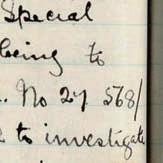 Special
being to
. No 27 568/
e to investigate